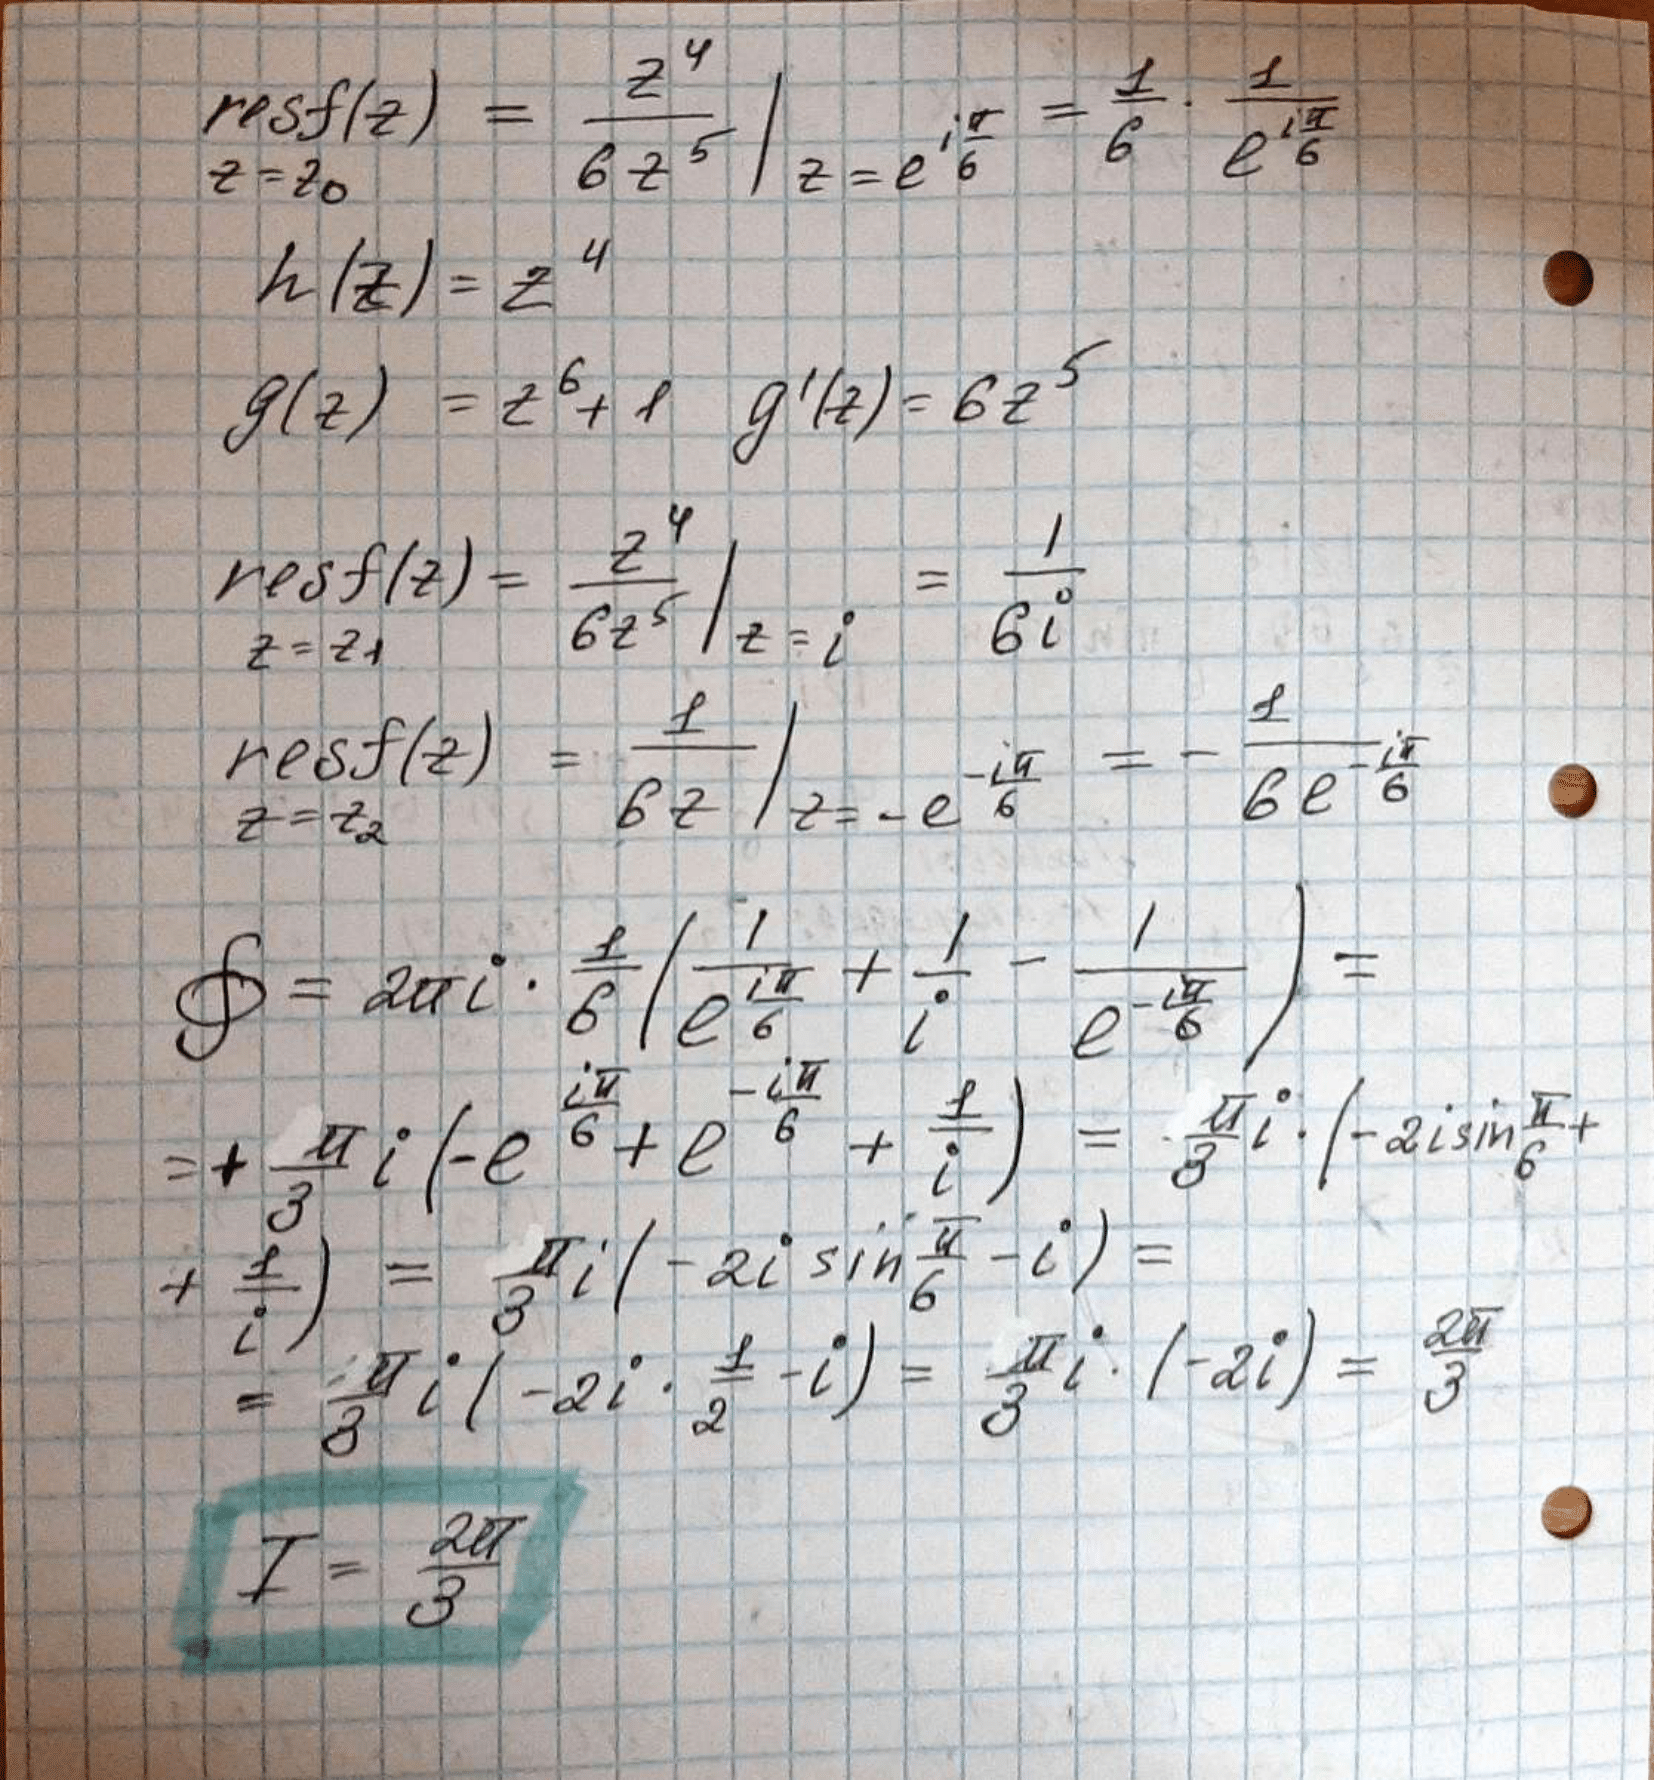 res f(z) = z⁴/6z⁵ | z=e^(iπ/6) = 1/6 · 1/e^(iπ/6)
z=z₀
h(z) = z⁴
g(z) = z⁶+1 g'(z) = 6z⁵
res f(z) = z⁴/6z⁵ | z=i = 1/6i
z=z₁
res f(z) = 1/6z | z=-e^(-iπ/6) = - 1/6e^(-iπ/6)
z=z₂
∮ = 2πi · 1/6 (1/e^(iπ/6) + 1/i - 1/e^(-iπ/6)) =
= + π/3 i (-e^(iπ/6) + e^(-iπ/6) + 1/i) = π/3 i · (-2i sin π/6 +
+ 1/i) = π/3 i (-2i sin π/6 - i) =
= π/3 i (-2i · 1/2 - i) = π/3 i · (-2i) = 2π/3
I = 2π/3